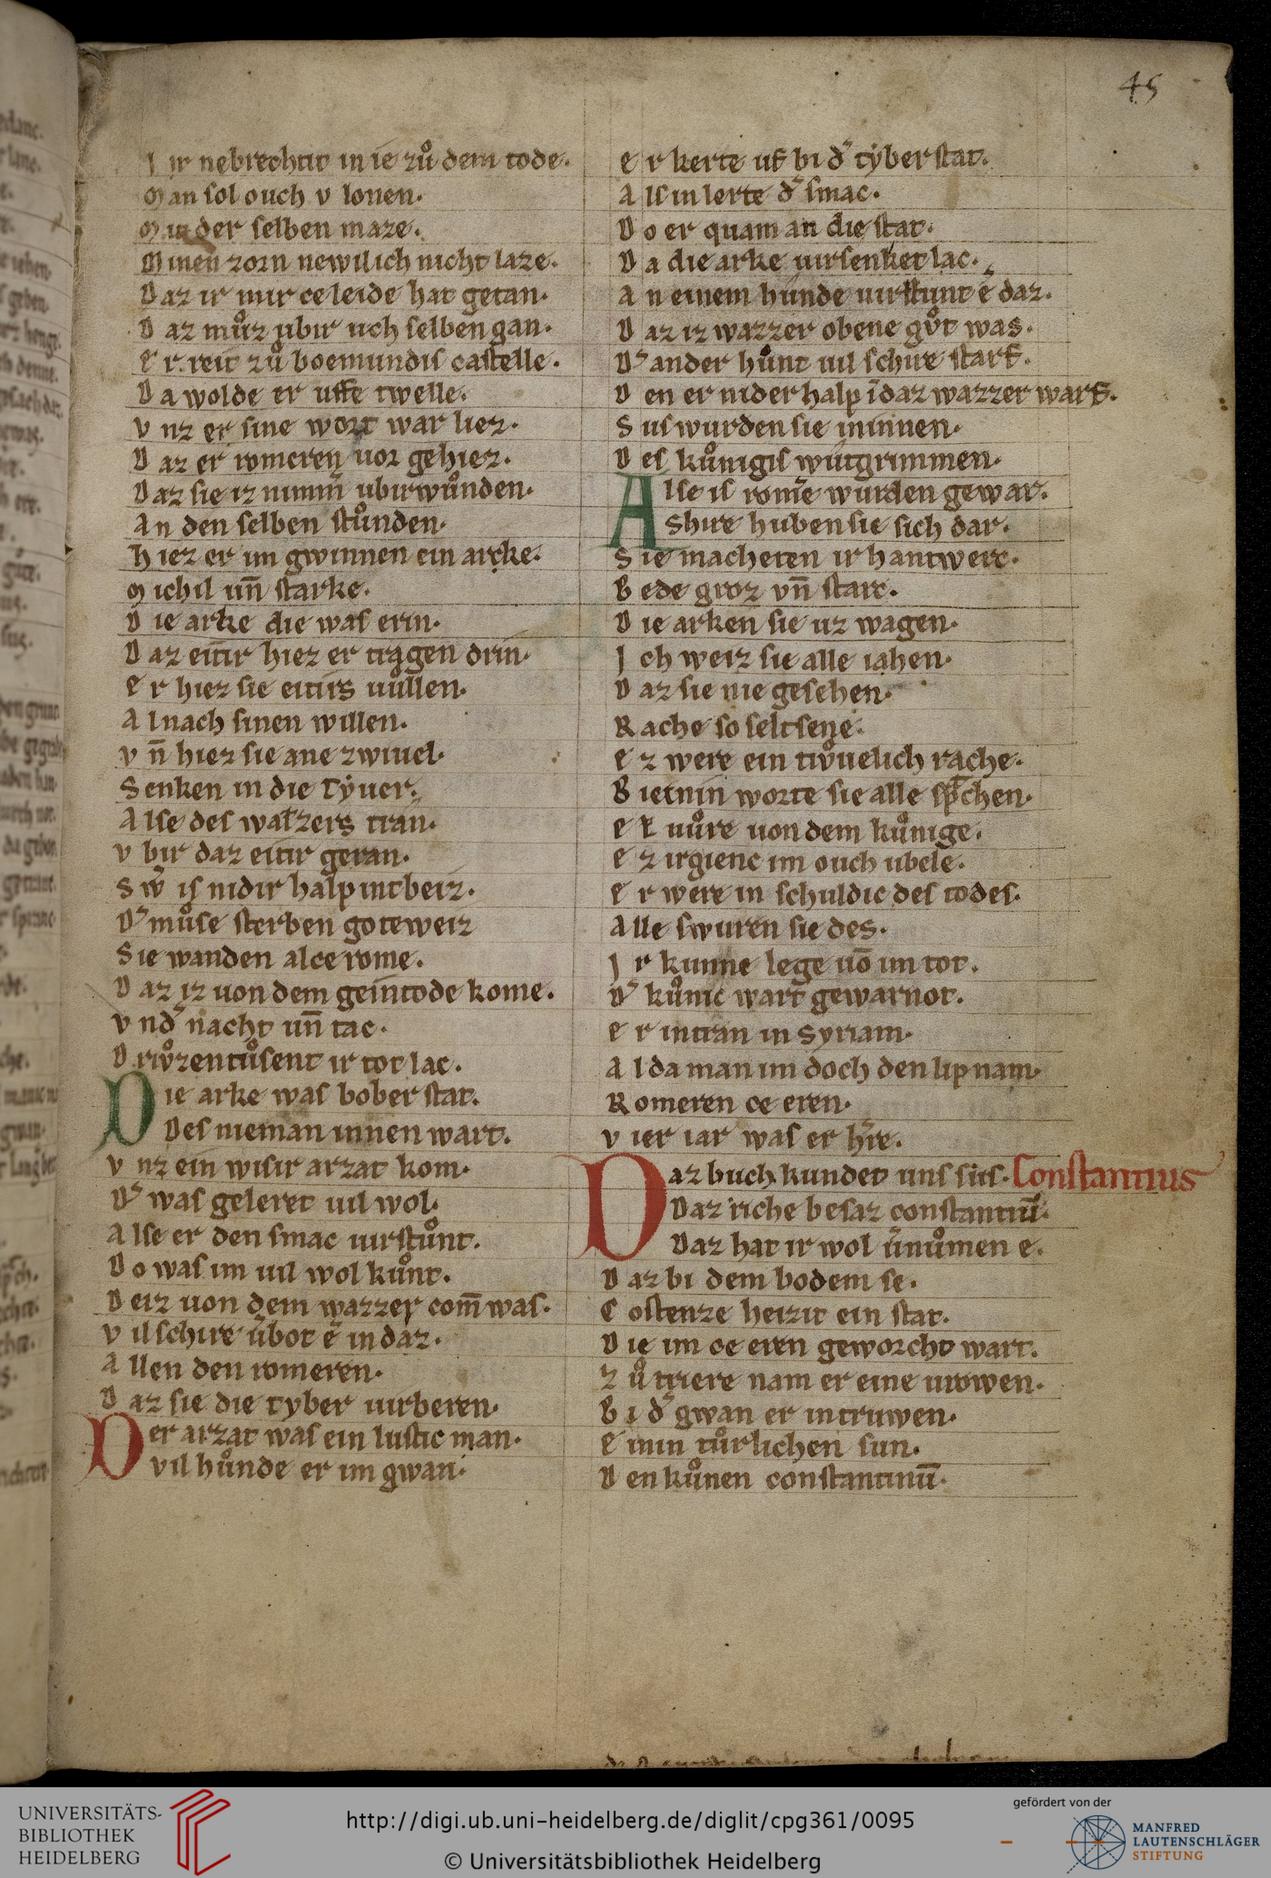 45
I ir nebrechtit in ie zů dem tode.
Man sol ouch v lonen.
M in der selben maze.
Minen zorn newil ich nicht laze.
Daz ir mir ce leide hat getan.
Daz můz ubir uch selben gan.
Er reit zů boemundis castelle.
Da wolde er uffe twelle.
Vnz er sine wort war liez.
Daz er romeren uor gehiez.
Daz sie iz nimm̄ ubirwůnden.
An den selben stůnden.
Hiez er im gwinnen ein arcke.
Michil un̄ starke.
Die arke die was erin.
Daz eitir hiez er tragen drin.
Er hiez sie eitirs uůllen.
Al nach sinen willen.
Vn̄ hiez sie ane zwiuel.
Senken in die Tẏuer.
Alse des wazzers tran.
Vbir daz eitir geran.
Sw̄ is nidir halp intbeiz.
D᾽ můse sterben goteweiz
Sie wanden al ce rome.
Daz iz uon dem gein tode kome.
Vnd᾽ nacht un̄ tac.
Driv̊zentůsent ir tot lac.
Die arke was bober stat.
Des nieman innen wart.
Vnz ein wisir arzat kom.
D᾽ was geleret uil wol.
Alse er den smac uirstůnt.
Do was im uil wol kůnt.
Deiz uon dem wazzer com̄ was.
Vil schire ūbot e᾽ in daz.
Allen den romeren.
Daz sie die tyber uirberen.
Der arzat was ein lustic man.
Vil hůnde er im gwan.
Er kerte uf bi d᾽ tẏber stat.
Als in lerte d᾽ smac.
Do er quam an die stat.
Da die arke uirsenket lac.
An einem hunde uirstunt e᾽ daz.
Daz iz wazzer obene gv̊t was.
D᾽ ander hůnt uil schire starf.
Den er niderhalp ī daz wazzer warf.
Sus wurden sie ininnen.
Des kůnigis wůtgrimmen.
Alse is rom̄e wurden gewar.
Shire huben sie sich dar.
Sie macheten ir hantwerc.
Bede groz vn̄ starc.
Die arken sie uz wagen.
Ich weiz sie alle iahen.
Daz sie nie gesehen.
Rache so seltsene.
Ez were ein tiv̊uelich rache.
Bietnin worte sie alle sp̄chen.
Er uůre uon dem kůnige.
Ez irgienc im ouch ubele.
Er were in schuldic des todes.
Alle swuren sie des.
Ir kunne lege uō im tot.
D᾽ kůnic wart gewarnot.
Er intran in Syriam.
Al da man im doch den lip nam.
Romeren ce eren.
Vier iar was er h᾽re.
Daz buch kundet uns sus. Constantius
Daz riche besaz constantiū.
Daz hat ir wol ūnůmen e.
Daz bi dem bodem se.
Costenze heizit ein stat.
Die im ce eren geworcht wart.
Zů triere nam er eine urowen.
Bi d᾽ gwan er intruwen.
Einin tůrlichen sun.
Den kůnen constantinū.
UNIVERSITÄTS-
BIBLIOTHEK
HEIDELBERG
http://digi.ub.uni-heidelberg.de/diglit/cpg361/0095
© Universitätsbibliothek Heidelberg
gefördert von der
MANFRED
LAUTENSCHLÄGER
STIFTUNG